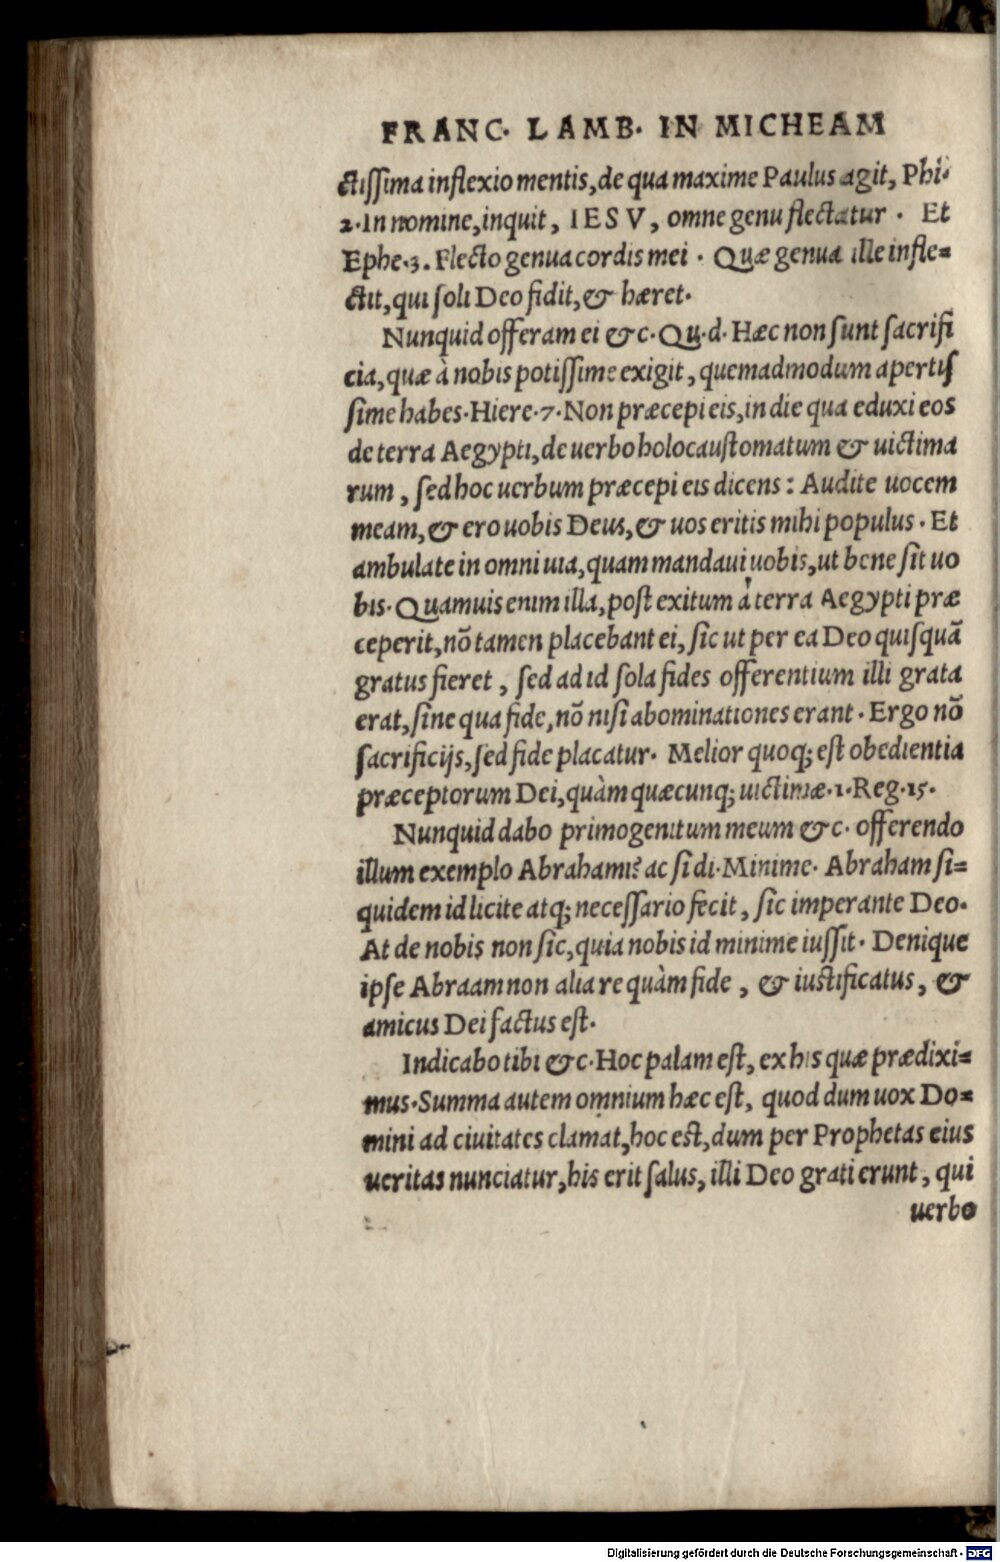 FRANC. LAMB. IN MICHEAM
ctissima inflexio mentis, de qua maxime Paulus agit, Phi.
2. In nomine, inquit, IESV, omne genu flectatur. Et
Ephe. 3. Flecto genua cordis mei. Quæ genua ille infle=
ctit, qui soli Deo fidit, & hæret.
Nunquid offeram ei &c. Qu. d. Hæc non sunt sacrifi
cia, quæ à nobis potissime exigit, quemadmodum apertis
sime habes. Hiere. 7. Non præcepi eis, in die qua eduxi eos
de terra Aegypti, de uerbo holocaustomatum & uictima
rum, sed hoc uerbum præcepi eis dicens: Audite uocem
meam, & ero uobis Deus, & uos eritis mihi populus. Et
ambulate in omni uia, quam mandaui uobis, ut bene sit uo
bis. Quamuis enim illa, post exitum à terra Aegypti præ
ceperit, nõ tamen placebant ei, sic ut per ea Deo quisquã
gratus fieret, sed ad id sola fides offerentium illi grata
erat, sine qua fide, nõ nisi abominationes erant. Ergo nõ
sacrificijs, sed fide placatur. Melior quoq; est obedientia
præceptorum Dei, quàm quæcunq; uictimæ. 1. Reg. 15.
Nunquid dabo primogenitum meum &c. offerendo
illum exemplo Abrahami? ac si di. Minime. Abraham si=
quidem id licite atq; necessario fecit, sic imperante Deo.
At de nobis non sic, quia nobis id minime iussit. Denique
ipse Abraam non alia re quàm fide, & iustificatus, &
amicus Dei factus est.
Indicabo tibi &c. Hoc palam est, ex his quæ prædixi=
mus. Summa autem omnium hæc est, quod dum uox Do=
mini ad ciuitates clamat, hoc est, dum per Prophetas eius
ueritas nunciatur, his erit salus, illi Deo grati erunt, qui
uerbo
Digitalisierung gefördert durch die Deutsche Forschungsgemeinschaft - DFG